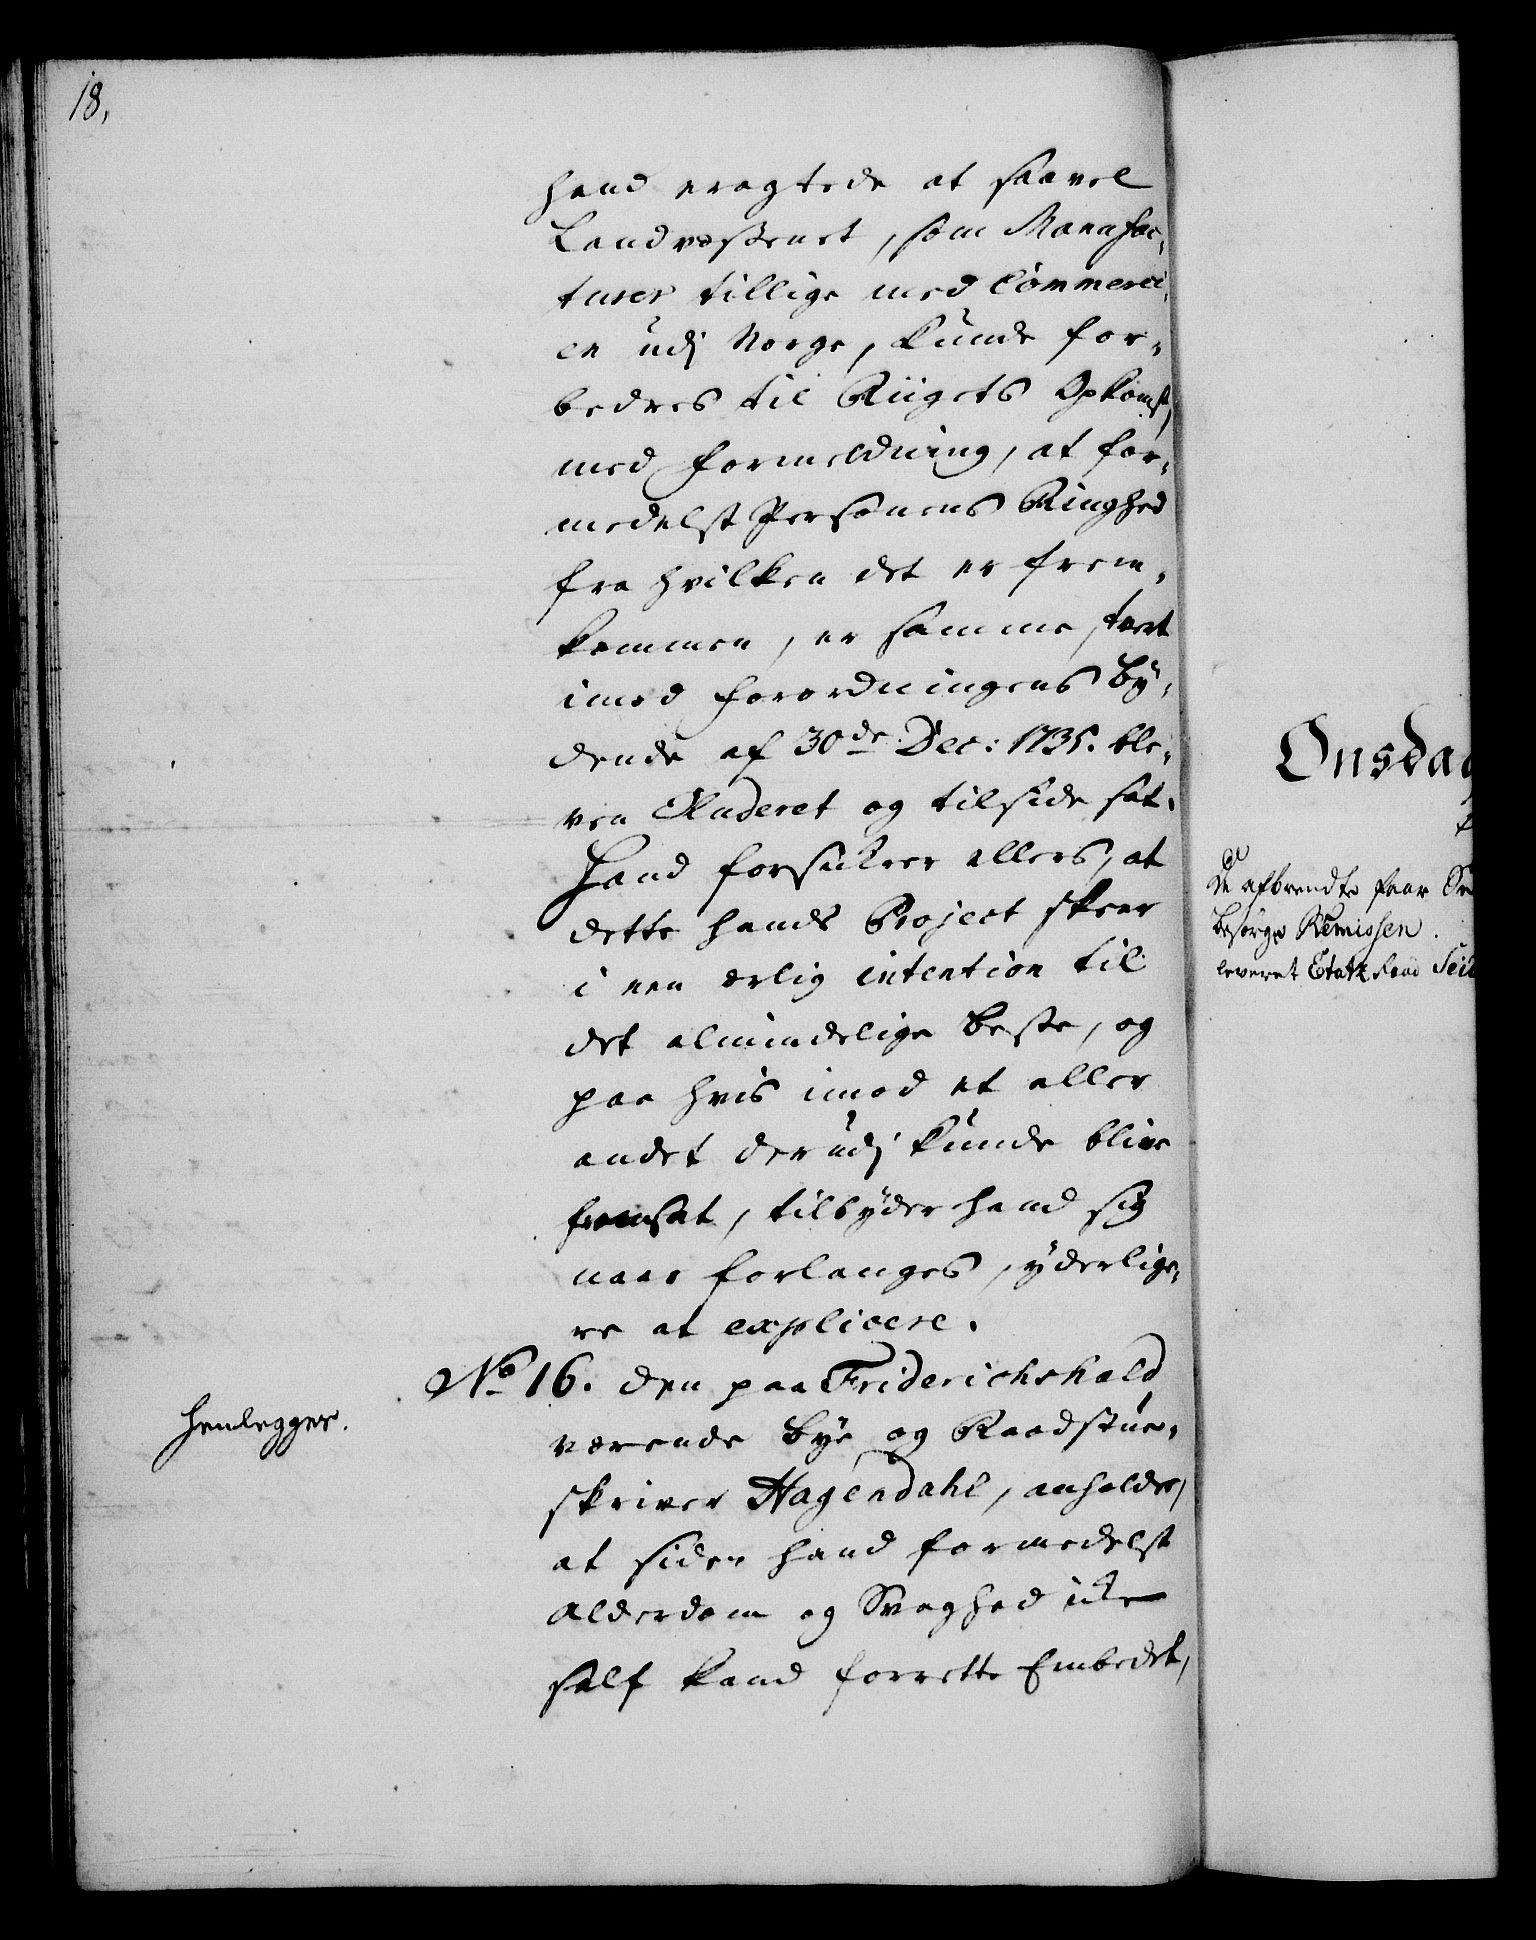 18.
hand eragtede at saavel
Landvæsenet, som Manufac„
turer tillige med Commerci„
en udj Norge, kunde for„
bedres til Riigets Opkomst,
med formeldning, at for„
medelst Personens Ringhed
fra hvilken det er frem„
kommen, er samme, tvert
imod Forordningens by„
dende af 30de Dec: 1735. ble„
ven Eluderet og tilside sat.
Hand forsikrer ellers, at
dette hands Project skeer
i een ærlig intention til
det almindelige beste, og
paa hvis imod et eller
andet derudj kunde blive
fremsat, tilbyder hand sig
naar forlanges, yderlige„
re at explicere.
No 16. den paa Friderichshald
værende bye og Raadstue„
skriver Hagendahl, anholder,
at siden hand formedelst
Alderdom og Svaghed icke
self kand forrette Embedet,
henlegges.
Onsdag
De afbrendte faar
besørge Remissen.
leveret Etatz Raad